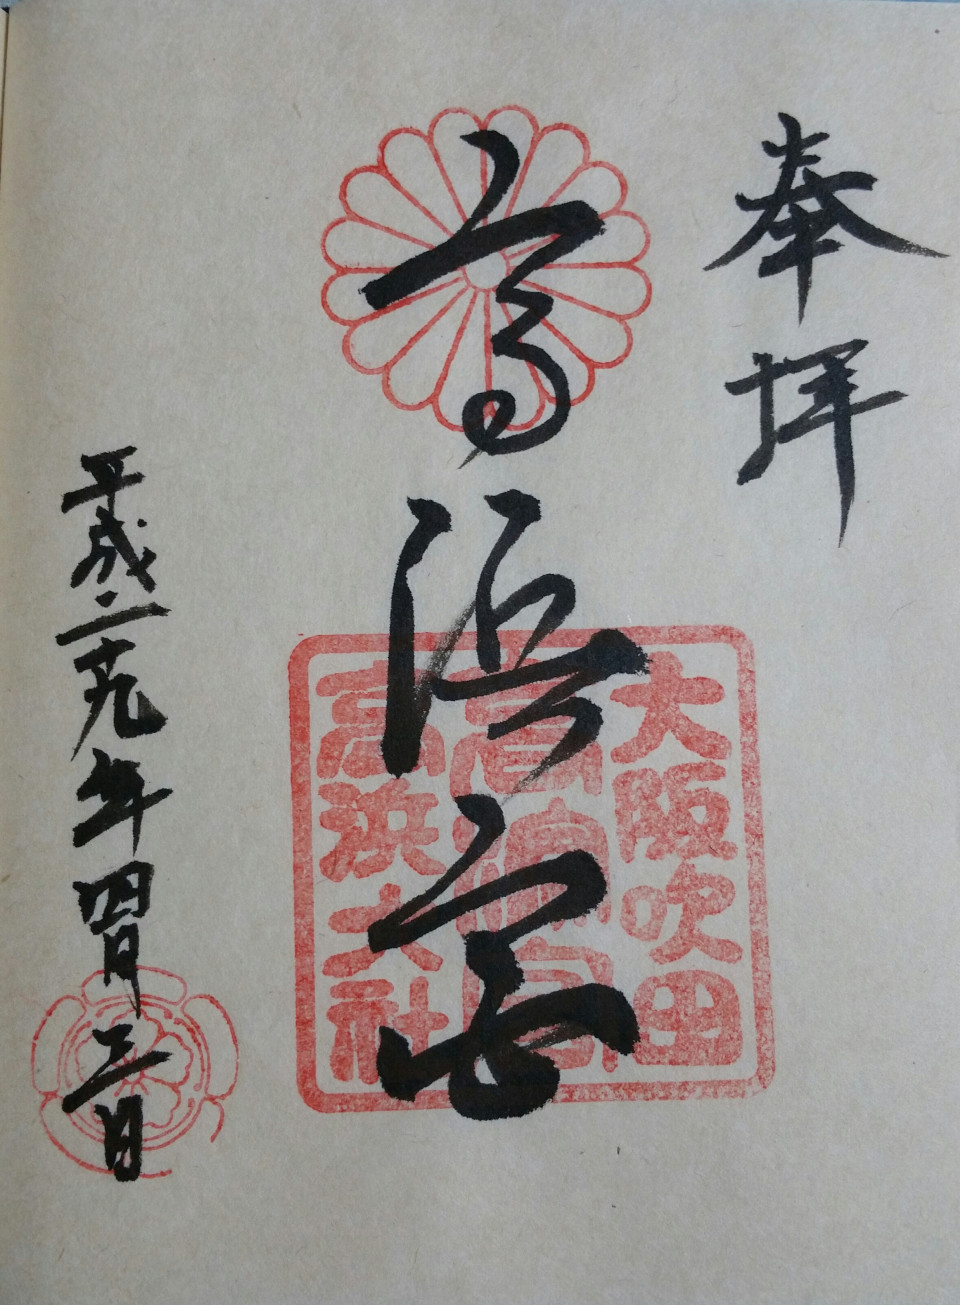 奉拝
高浜宮
大阪吹田
高濱宮
高浜大社
平成二十九年四月三日